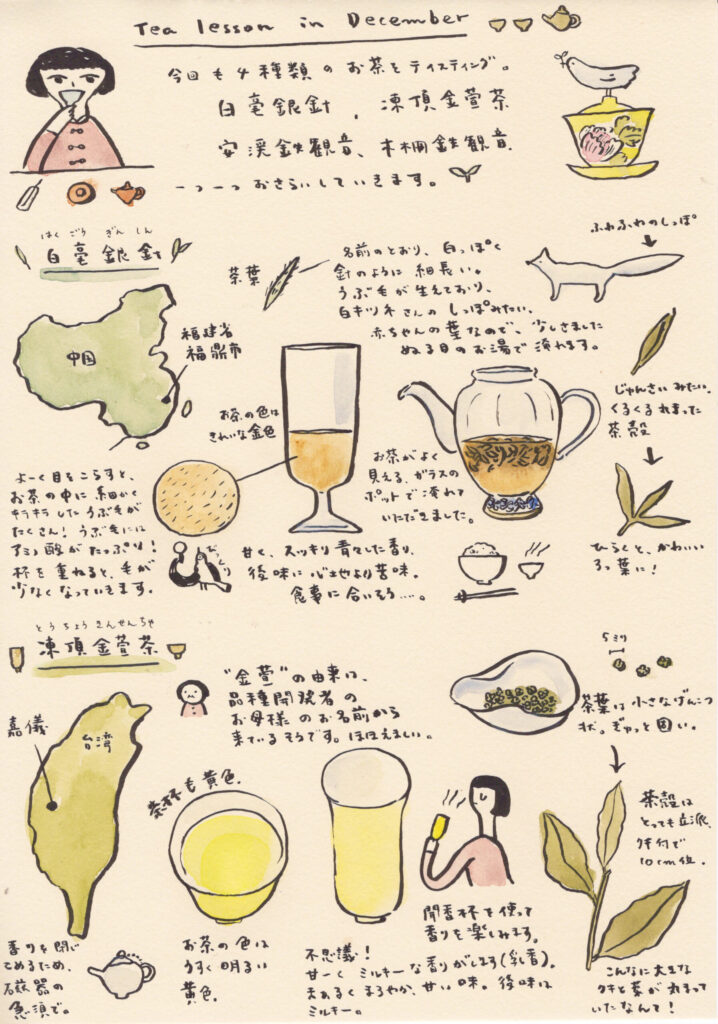 Tea lesson in December
今回も4種類のお茶をティスティング。
白毫銀針、凍頂金萱茶
安渓鉄観音、木柵鉄観音.
一つ一つおさらいしていきます。
はくごうぎんしん
白毫銀針
茶葉
名前のとおり、白っぽく
針のように細長い。
うぶ毛が生えており、
白キツネさんのしっぽみたい、
赤ちゃんの葉なので、少しさました
ぬる目のお湯で淹れます。
ふわふわのしっぽ
中国
福建省
福鼎市
お茶の色は
きれいな金色
じゅんさいみたい、
くるくる丸まった
茶殻
お茶がよく
見える、ガラスの
ポットで淹れて
いただきました。
ひらくと、かわいい
3つ葉に!
よーく目をこらすと、
お茶の中に細かく
キラキラしたうぶ毛が
たくさん!うぶ毛には
アミノ酸がたっぷり!
杯を重ねると、毛が
少なくなっていきます。
甘く、スッキリ青々した香り、
後味に心地よい苦味。
食事に合いそう....。
とうちょうきんせんちゃ
凍頂金萱茶
嘉儀
台湾
"金萱"の由来は、
品種開発者の
お母様のお名前から
来ているそうです。ほほえましい。
5ミリ
茶葉は小さなげんこつ
状。ぎゅっと固い。
茶殻は
とっても立派、
クキ付で
10cm位。
茶杯も黄色.
聞香杯を使って
香りを楽しみます。
香りを閉じ
こめるため、
磁器の
急須で。
お茶の色は
うすく明るい
黄色.
不思議!
甘ーくミルキーな香りがします(乳香)。
まあるくまろやか、甘い味。後味は
ミルキー。
こんなに大きな
クキと葉が丸まって
いたなんて!